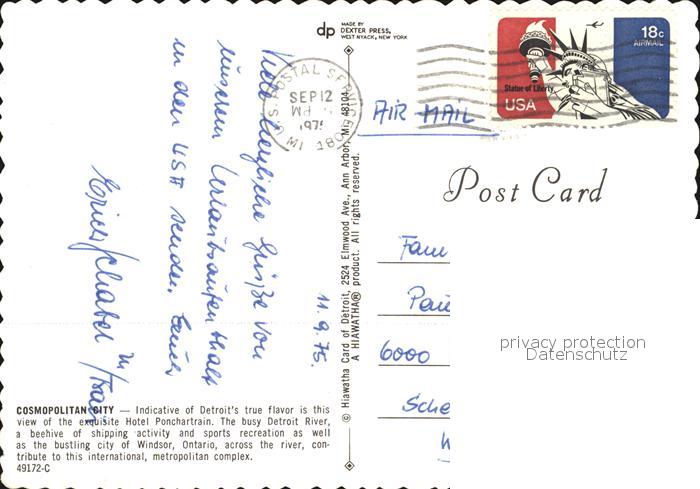 dp MADE BY
DEXTER PRESS,
WEST NYACK, NEW YORK
18c
AIRMAIL
Statue of Liberty
USA
U.S. POSTAL SERVICE
SEP 12
PM
1975
MI 480
AIR MAIL
Post Card
11.9.75.
Viele herzliche Grüße von
unserem Urlaubsaufenthalt
in den USA senden Euch
Fam
6000
privacy protection
Datenschutz
© Hiawatha Card of Detroit, 2524 Elmwood Ave., Ann Arbor, MI 48104
A HIAWATHA® product. All rights reserved.
COSMOPOLITAN CITY — Indicative of Detroit's true flavor is this
view of the exquisite Hotel Ponchartrain. The busy Detroit River,
a beehive of shipping activity and sports recreation as well
as the bustling city of Windsor, Ontario, across the river, con-
tribute to this international, metropolitan complex.
49172-C